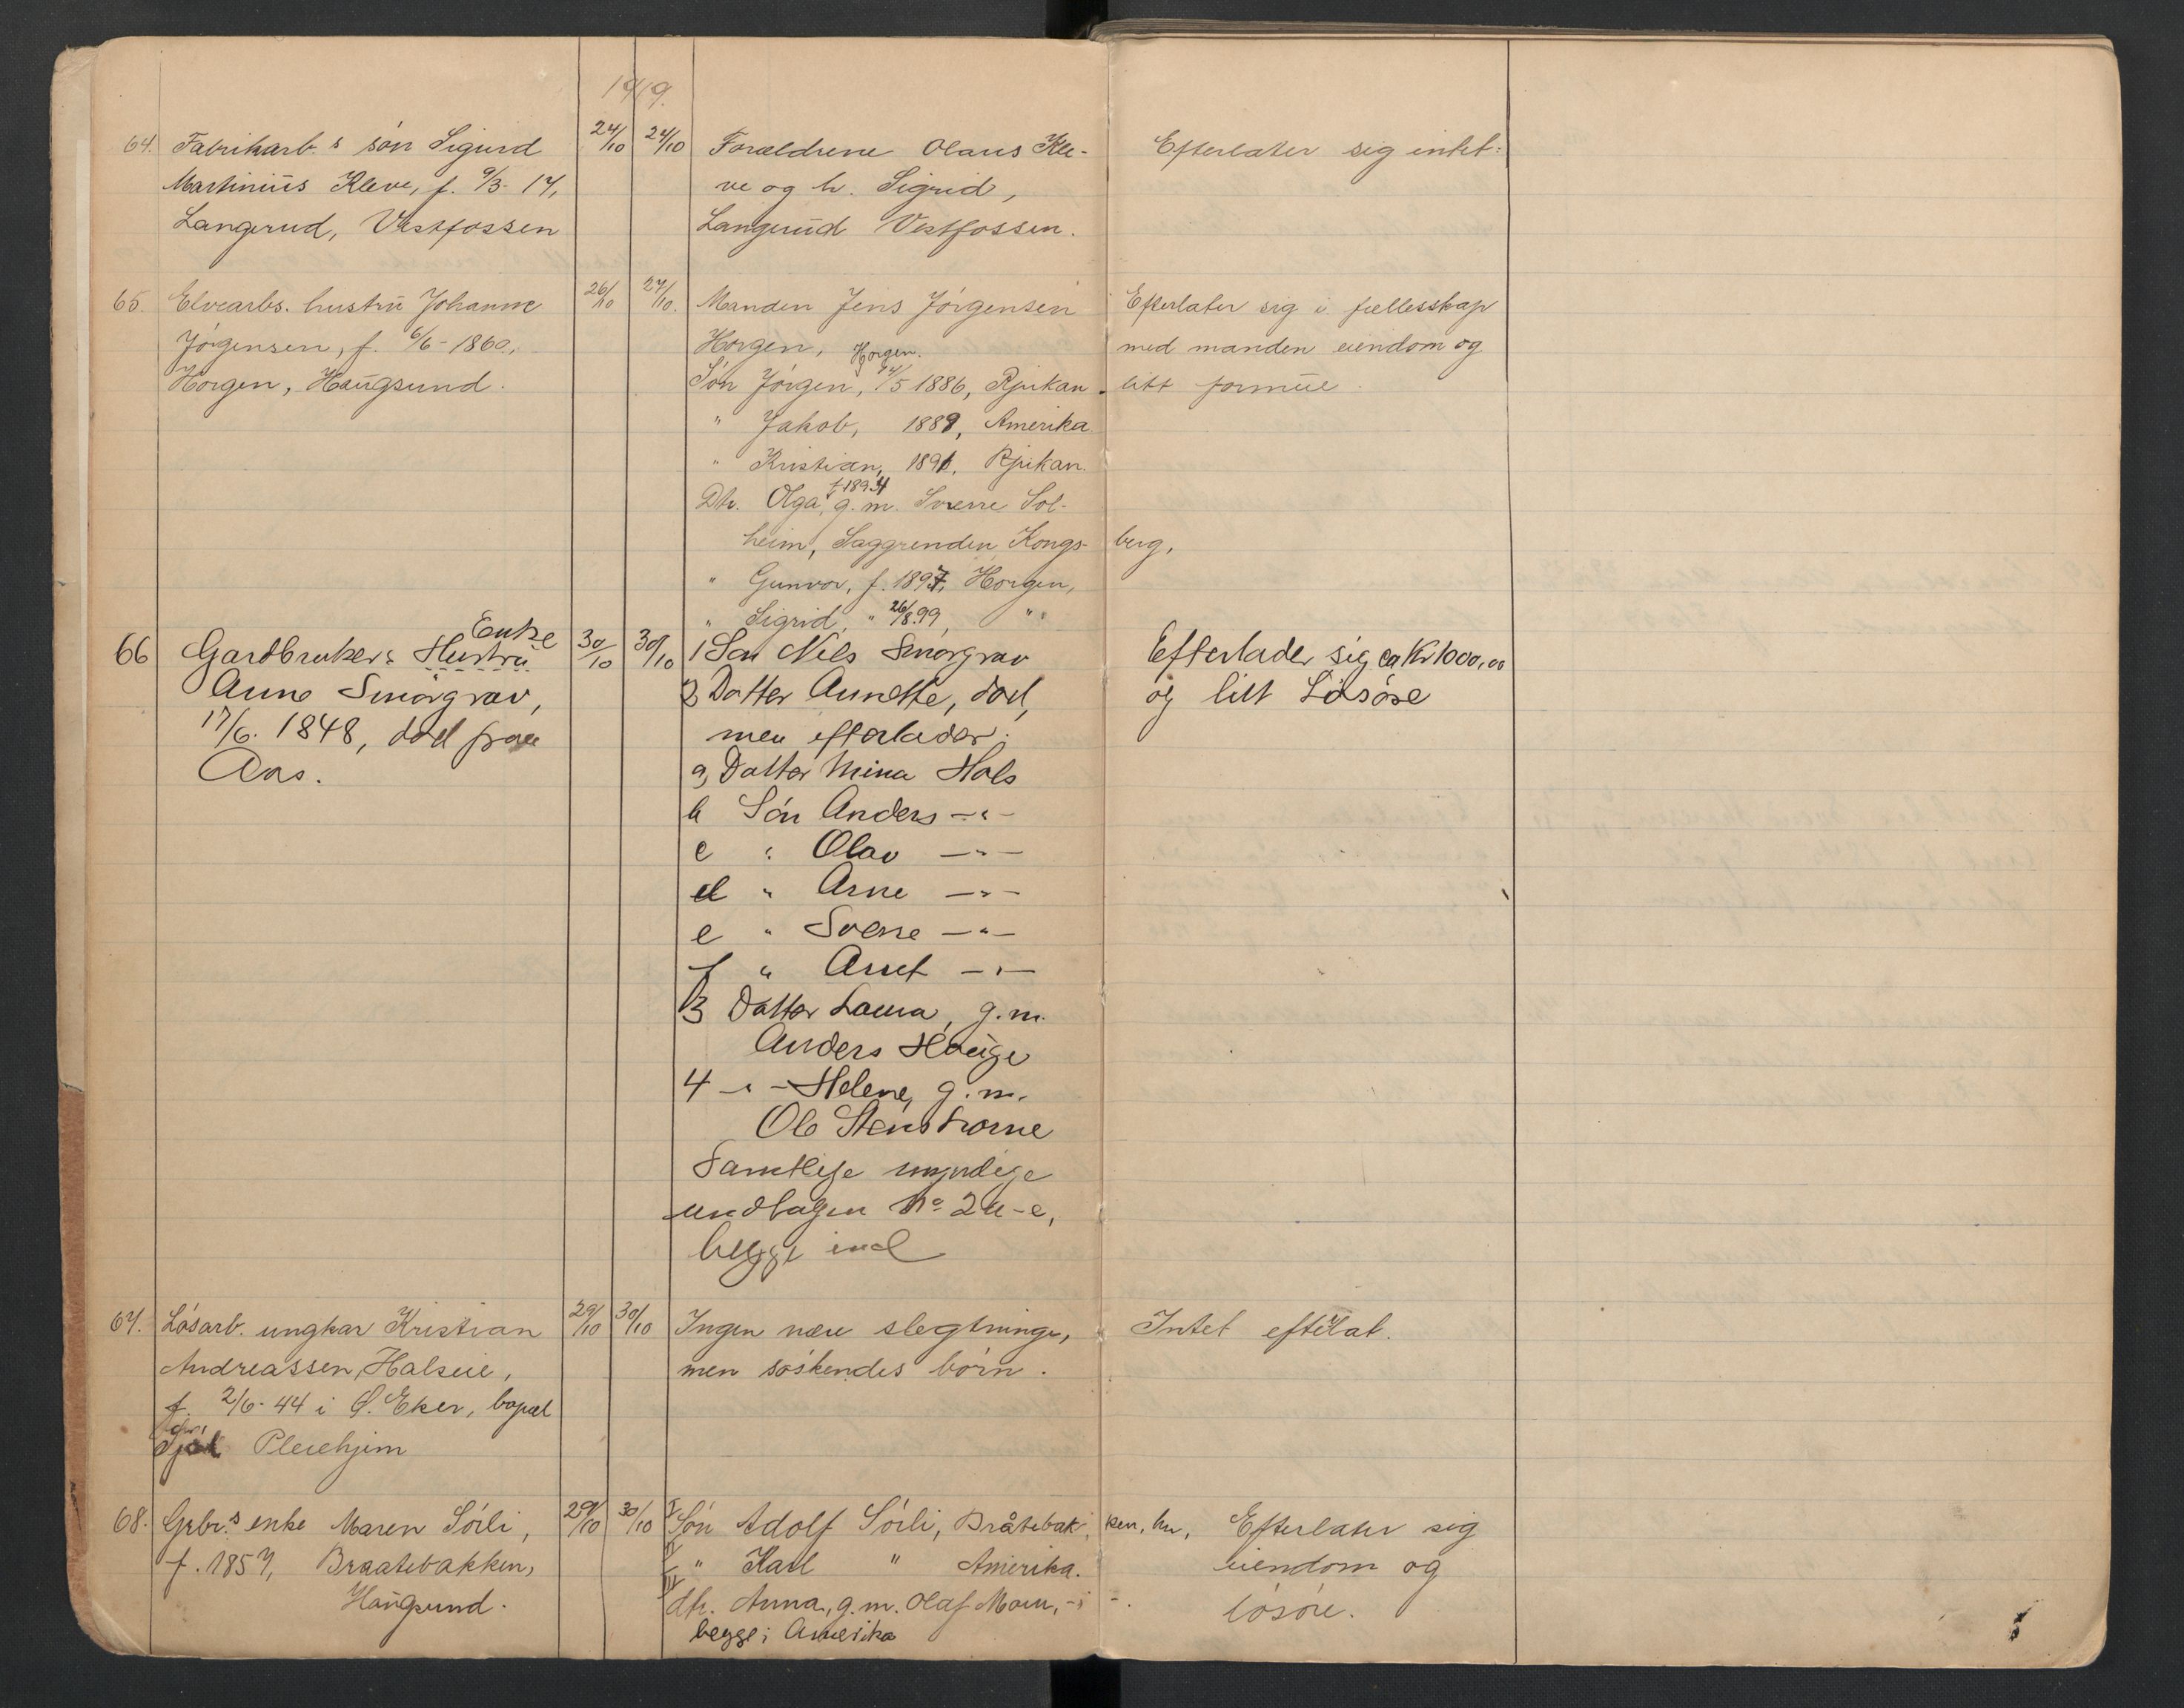 1919.
64. Fabrikarb.s søn Sigurd 24/10 24/10 Forældrene Olaus Kle- Efterlater sig intet.
Martinius Kleve, f. 9/3-17, ve og h. Sigrid,
Langerud, Vestfossen Langerud Vestfossen.
65. Elvearbs. hustru Johanne 26/10 27/10. Manden Jens Jörgensen Efterlater sig i fællesskap
Jörgensen, f. 6/6-1860, Horgen, med manden eiendom og
Horgen.
Horgen, Haugsund. Sön Jörgen, /5 1886, Rjukan. litt formue.
" Jakob, 1889, Amerika
" Kristian, 1891, Rjukan.
f. 1894
Dtr. Olga, g.m. Sverre Sol-
heim, Saggrenden, Kongs- berg,
" Gunvor, f. 1897, Horgen,
" Sigrid, " 26/8.99, " "
Enke
66 Gardbrukers Hustru 30/10 30/10 1 Sön Nils Smörgrav Efterlader sig ca Kr 1000,00
Anne Smörgrav, 2 Datter Annette, död, og litt Lösöre
17/6. 1848, död paa men efterlader:
Aas. a, Datter Mina Hals
b Sön Anders -"-
c " Olav -"-
d " Arne -"-
e " Sverre -"-
f " Arnt -"-
3 Datter Laura, g.m.
Anders Hauge
4 -"- Helene, g.m.
Ole Stenshorne
Samtlige myndige
undtagen No 2a-e,
begge incl
67. Lösarb. ungkar Kristian 29/10 30/10 Ingen nære slegtninge, Intet efterlat.
Andreassen, Halseie, men söskendes börn.
f. 2/6-44 i Ø. Eker, bopæl
Pleiehjem
68. Grbr.s enke Maren Sörli, 29/10 30/10 I Sön Adolf Sörli, Bråtebak- ken, hu, Efterlater sig
f. 1857, Braatebakken, II " Karl " Amerika. eiendom og
Haugsund. III dtr. Anna, g.m. Olaf Moen, -"- lösöre.
begge i Amerika